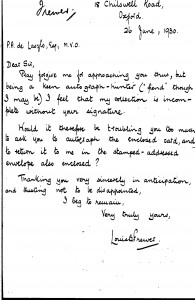 Frewer
18 Chilswell Road,
Oxford.
26 June, 1930.
P.A. de Laszlo, Esq., M.V.O.
Dear Sir,
Pray forgive me for approaching you thus, but
being a keen autograph-hunter ('fiend' though
I may be) I feel that my collection is incom-
plete without your signature.
Would it therefore be troubling you too much
to ask you to autograph the enclosed card, and
to return it to me in the stamped-addressed
envelope also enclosed?
Thanking you very sincerely in anticipation,
and trusting not to be disappointed,
I beg to remain,
Very truly yours,
Louis Frewer.